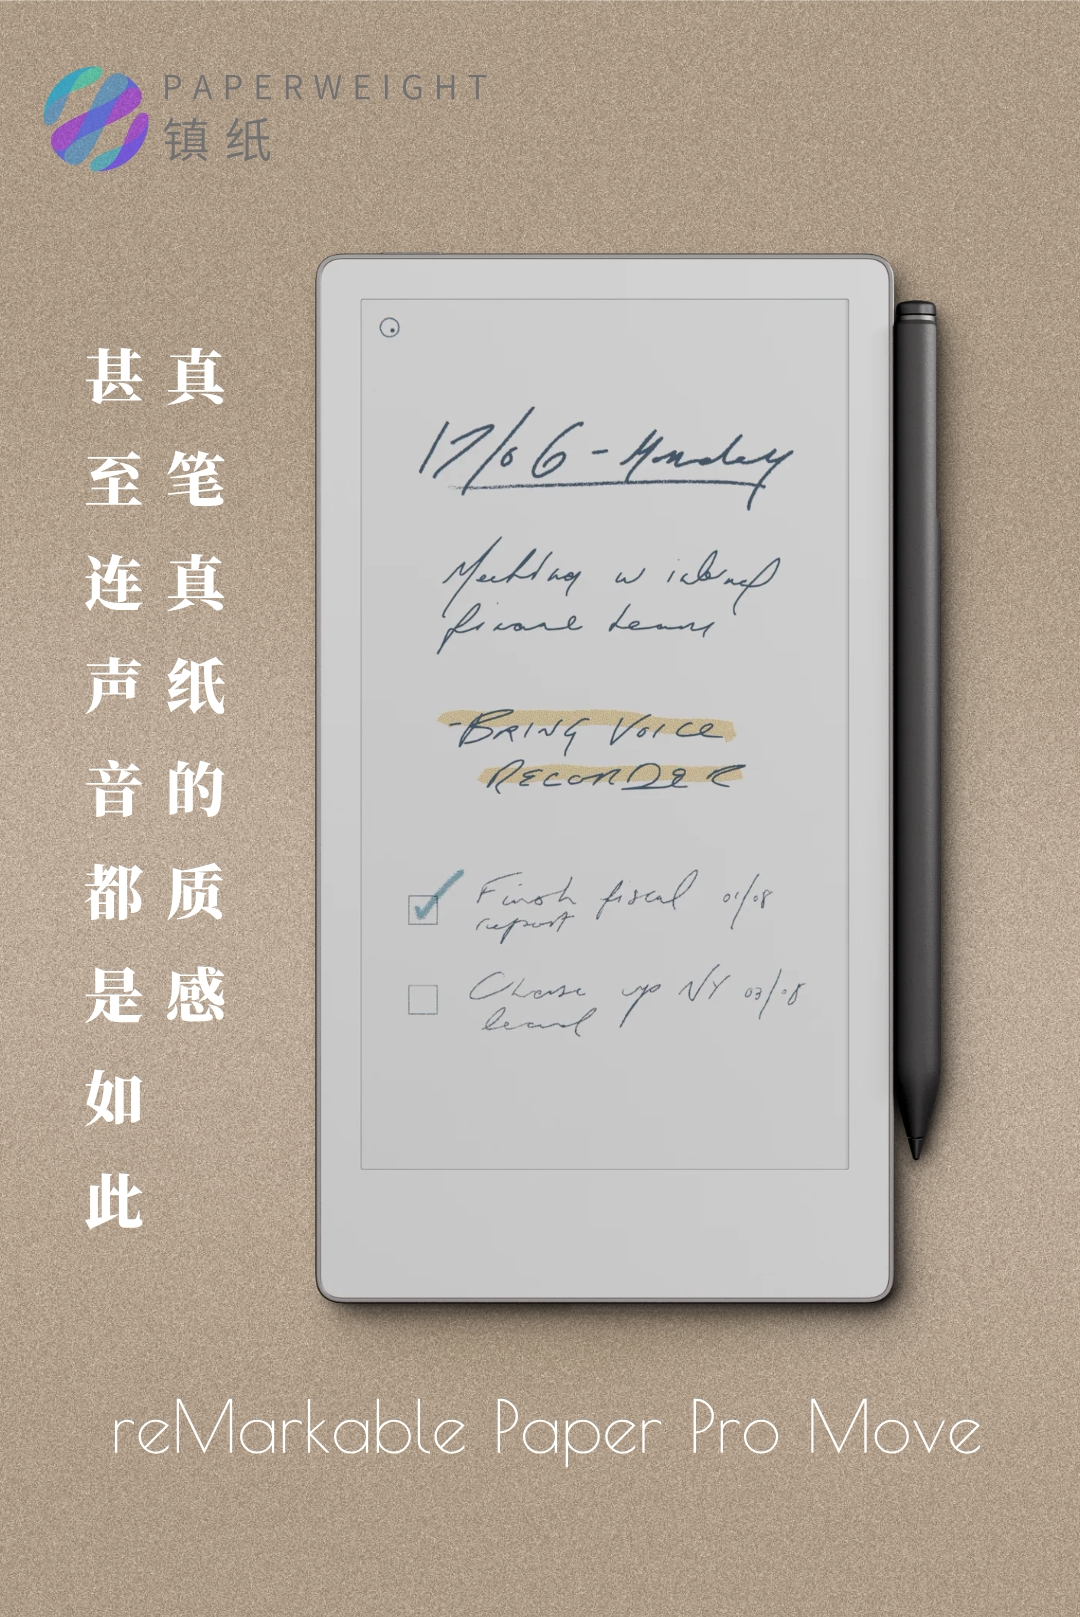 PAPERWEIGHT
镇纸
真笔真纸的质感
甚至连声音都是如此
17/06 - Monday
Meeting w internal
finance team
- BRING VOICE
RECORDER
Finish fiscal 01/08
report
Chase up NY 03/08
board
reMarkable Paper Pro Move